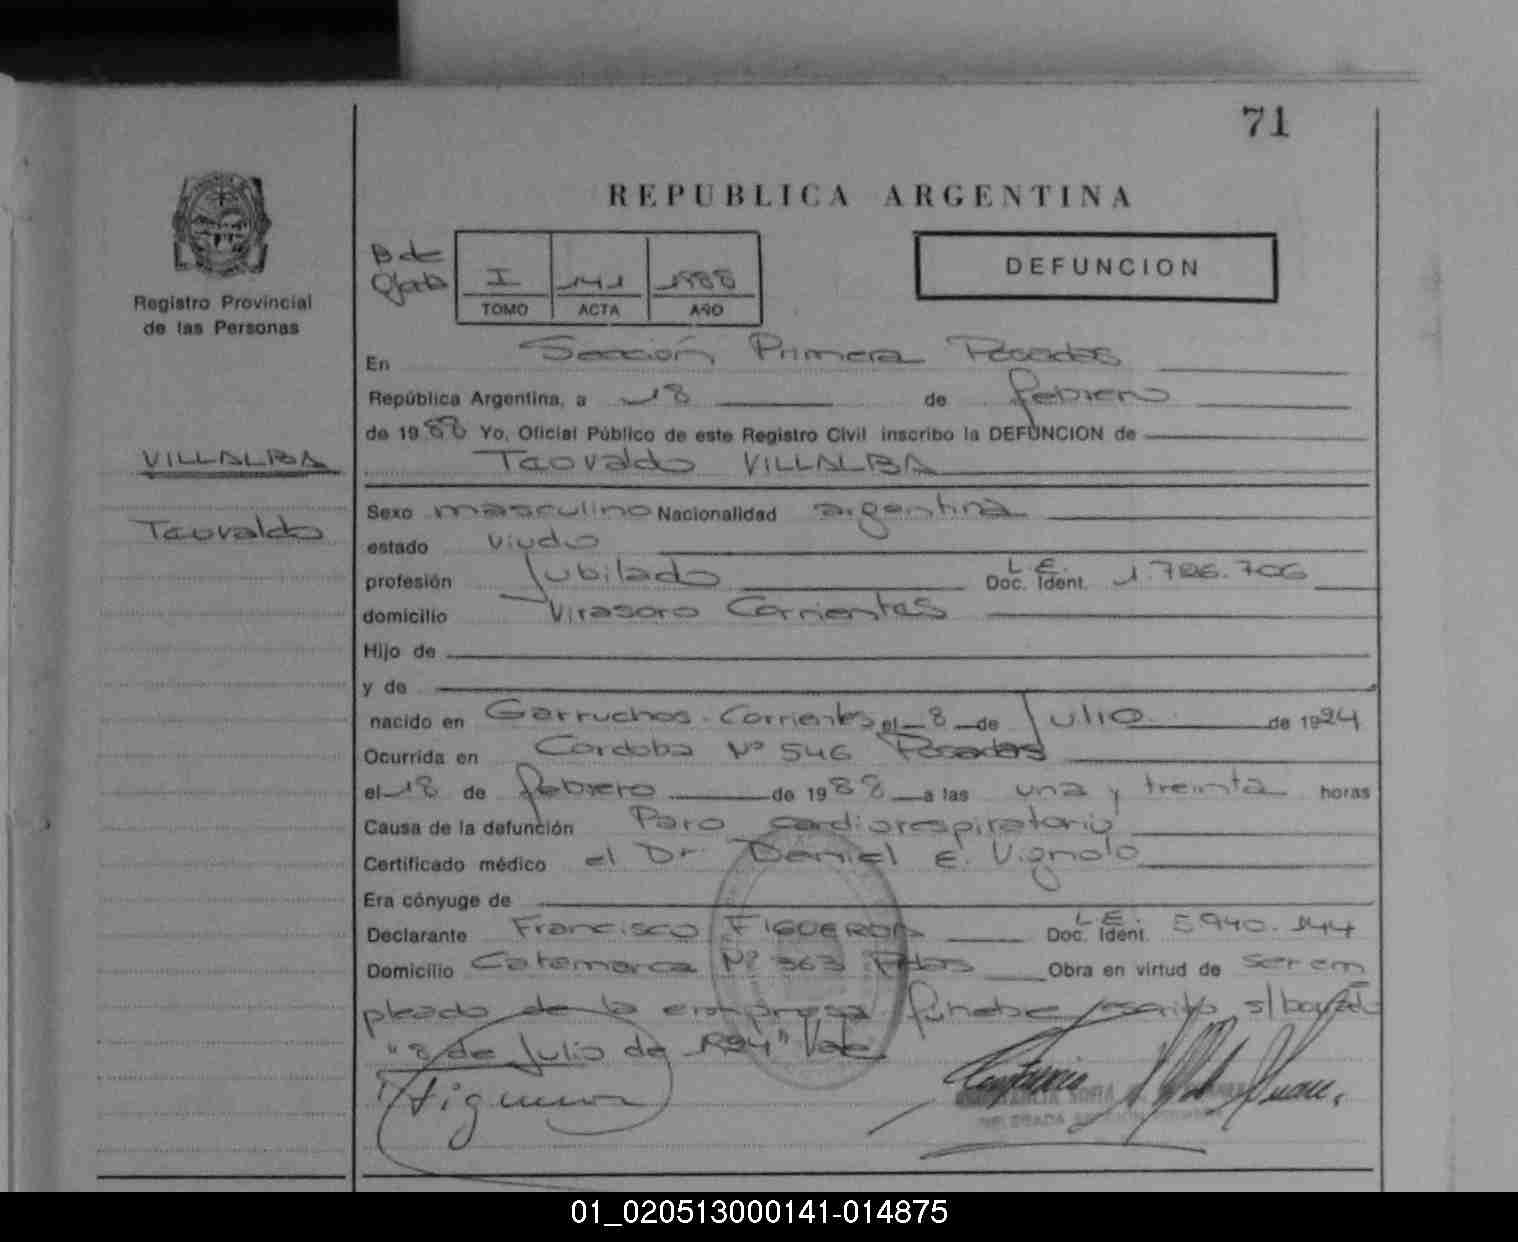 71
REPUBLICA ARGENTINA
DEFUNCION
B de
I 141 1988
TOMO ACTA AÑO
Registro Provincial
de las Personas
En Sección Primera Posadas
República Argentina, a 18 de febrero
de 1988 Yo, Oficial Público de este Registro Civil inscribo la DEFUNCION de
VILLALBA
Taovaldo VILLALBA
Taovaldo
Sexo masculino Nacionalidad argentina
estado viudo
profesión Jubilado L.E. Doc. Ident. 1.726.706
domicilio Virasoro Corrientes
Hijo de
y de
nacido en Garruchos - Corrientes el 8 de Julio de 1924
Ocurrida en Cordoba Nº 546 Posadas
el 18 de febrero de 1988 a las una y treinta horas
Causa de la defunción Paro cardiorespiratorio
Certificado médico el Dr. Daniel E. Vignolo
Era cónyuge de
Declarante Francisco FIGUEROA L.E. Doc. Ident. 5.940.144
Domicilio Catamarca Nº 363 Pdas Obra en virtud de ser em
pleado de la empresa fúnebre escrito s/borrado
"8 de Julio de 1924" Vale
01_020513000141-014875